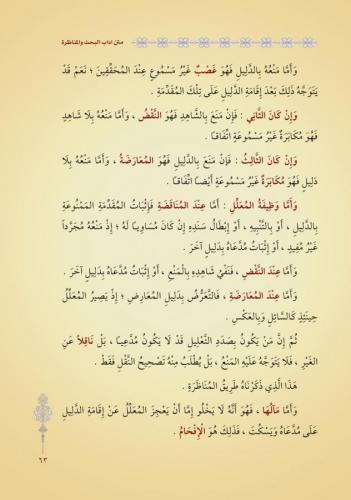 متن آداب البحث والمناظرة
وَأَمَّا مَنْعُهُ بِالدَّلِيلِ فَهُوَ غَصْبٌ غَيْرُ مَسْمُوعٍ عِنْدَ المُحَقِّقِينَ ؛ نَعَمْ قَدْ
يَتَوَجَّهُ ذَلِكَ بَعْدَ إِقَامَةِ الدَّلِيلِ عَلَى تِلْكَ المُقَدِّمَةِ .
وَإِنْ كَانَ الثَّانِي : فَإِنْ مَنَعَ بِالشَّاهِدِ فَهُوَ النَّقْضُ ، وَأَمَّا مَنْعُهُ بِلَا شَاهِدٍ
فَهُوَ مُكَابَرَةٌ غَيْرُ مَسْمُوعَةٍ اتِّفَاقًا .
وَإِنْ كَانَ الثَّالِثُ : فَإِنْ مَنَعَ بِالدَّلِيلِ فَهُوَ المُعَارَضَةُ ، وَأَمَّا مَنْعُهُ بِلَا
دَلِيلٍ فَهُوَ مُكَابَرَةٌ غَيْرُ مَسْمُوعَةٍ أَيْضًا اتِّفَاقًا .
وَأَمَّا وَظِيفَةُ المُعَلِّلِ : أَمَّا عِنْدَ المُنَاقَضَةِ فَإِثْبَاتُ المُقَدِّمَةِ المَمْنُوعَةِ
بِالدَّلِيلِ ، أَوْ بِالتَّنْبِيهِ ، أَوْ إِبْطَالُ سَنَدِهِ إِنْ كَانَ مُسَاوِيًا لَهُ ؛ إِذْ مَنْعُهُ مُجَرَّدًا
غَيْرُ مُفِيدٍ ، أَوْ إِثْبَاتُ مُدَّعَاهُ بِدَلِيلٍ آخَرَ .
وَأَمَّا عِنْدَ النَّقْضِ ، فَنَفْيُ شَاهِدِهِ بِالمَنْعِ ، أَوْ إِثْبَاتُ مُدَّعَاهُ بِدَلِيلٍ آخَرَ .
وَأَمَّا عِنْدَ المُعَارَضَةِ ، فَالتَّعَرُّضُ بِدَلِيلِ المُعَارِضِ ؛ إِذْ يَصِيرُ المُعَلِّلُ
حِينَئِذٍ كَالسَّائِلِ وَبِالعَكْسِ .
ثُمَّ إِنَّ مَنْ يَكُونُ بِصَدَدِ التَّعْلِيلِ قَدْ لَا يَكُونُ مُدَّعِيًا ، بَلْ نَاقِلًا عَنِ
الغَيْرِ ، فَلَا يَتَوَجَّهُ عَلَيْهِ المَنْعُ ، بَلْ يُطْلَبُ مِنْهُ تَصْحِيحُ النَّقْلِ فَقَطْ .
هَذَا الَّذِي ذَكَرْنَاهُ طَرِيقُ المُنَاظَرَةِ .
وَأَمَّا مَآلُهَا ، فَهُوَ أَنَّهُ لَا يَخْلُو إِمَّا أَنْ يَعْجِزَ المُعَلِّلُ عَنْ إِقَامَةِ الدَّلِيلِ
عَلَى مُدَّعَاهُ وَيَسْكُتَ ، فَذَلِكَ هُوَ الإِفْحَامُ .
٦٣